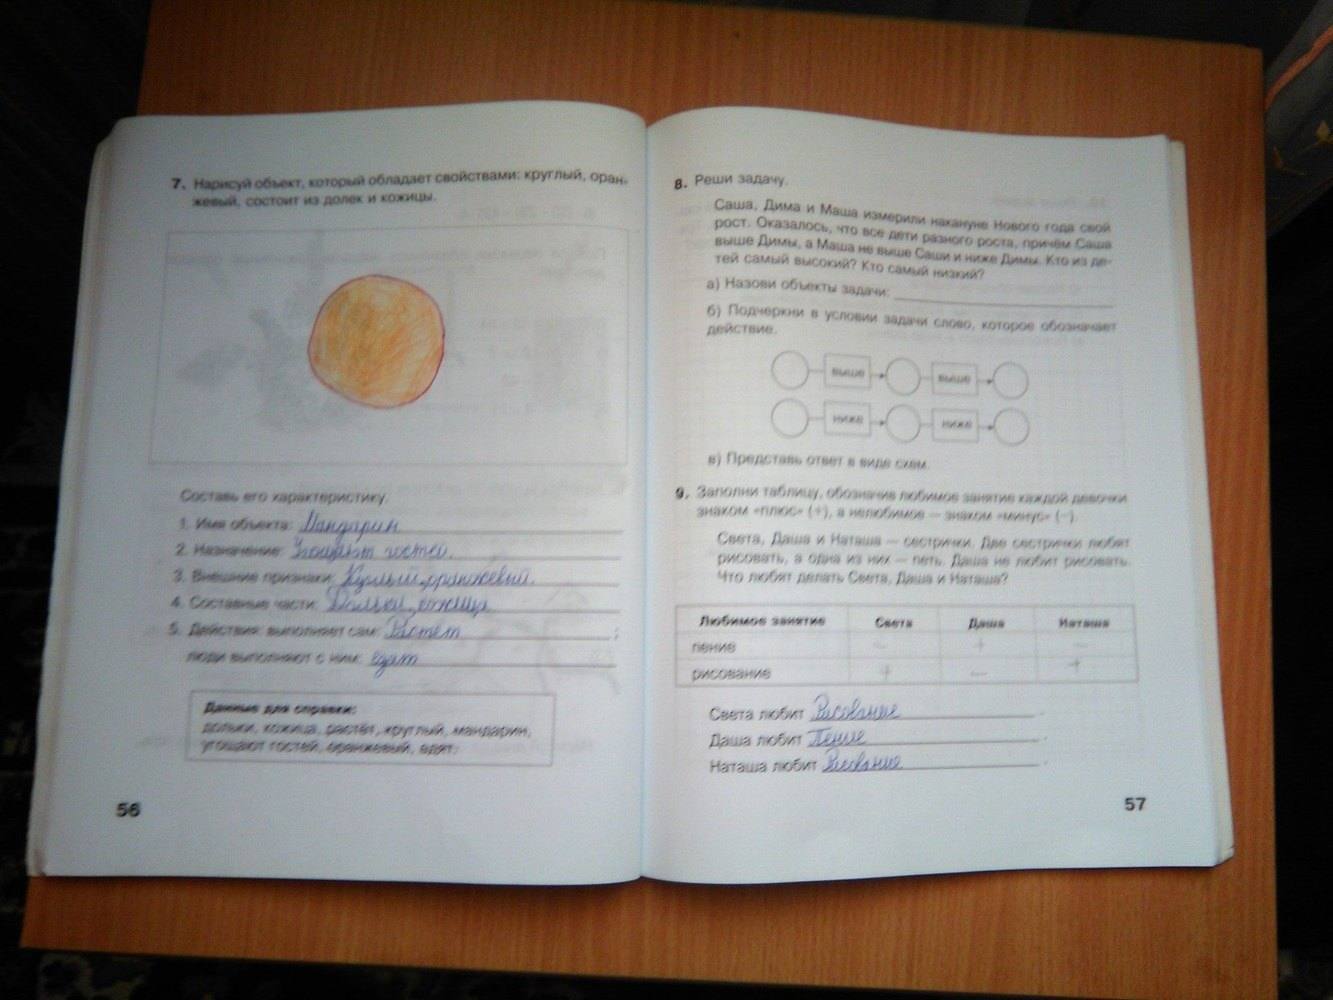 7. Нарисуй объект, который обладает свойствами: круглый, оран-
жевый, состоит из долек и кожицы.
Составь его характеристику.
1. Имя объекта: Мандарин
2. Назначение: Угощают гостей.
3. Внешние признаки: Круглый, оранжевый.
4. Составные части: Дольки, кожица
5. Действия: выполняет сам: Растет ;
люди выполняют с ним: едят
Данные для справки:
дольки, кожица, растёт, круглый, мандарин,
угощают гостей, оранжевый, едят.
56
8. Реши задачу.
Саша, Дима и Маша измерили накануне Нового года свой
рост. Оказалось, что все дети разного роста, причём Саша
выше Димы, а Маша не выше Саши и ниже Димы. Кто из де-
тей самый высокий? Кто самый низкий?
а) Назови объекты задачи:
б) Подчеркни в условии задачи слово, которое обозначает
действие.
выше выше
ниже ниже
в) Представь ответ в виде схем.
9. Заполни таблицу, обозначив любимое занятие каждой девочки
знаком «плюс» (+), а нелюбимое — знаком «минус» (−).
Света, Даша и Наташа — сестрички. Две сестрички любят
рисовать, а одна из них — петь. Даша не любит рисовать.
Что любят делать Света, Даша и Наташа?
Любимое занятие Света Даша Наташа
пение − + −
рисование + − +
Света любит Рисование .
Даша любит Пение .
Наташа любит Рисование .
57